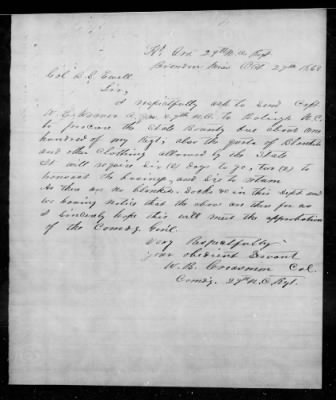 Hd Qrs 29th N.C. Regt
Brandon Miss Oct 27th 1863
Col B. S. Ewell
Sir,
I respectfully ask to send Capt
W. G. 29th N.C. to Raleigh N.C.
to procure the State Bounty due about one
hundred of my Regt, also the quota of Blankets
and other Clothing allowed by the State
It will require six (6) days to go, Two (2) to
transact the business, and six to return
As there are no blankets, Socks &c in this Dept and
we having notice that the above are there for us
I sincerely hope this will meet the approbation
of the Comdg Genl.
Very Respectfully
Your obedient Servant
W. B. Creasman Col.
Comdg. 29th N.C. Regt.